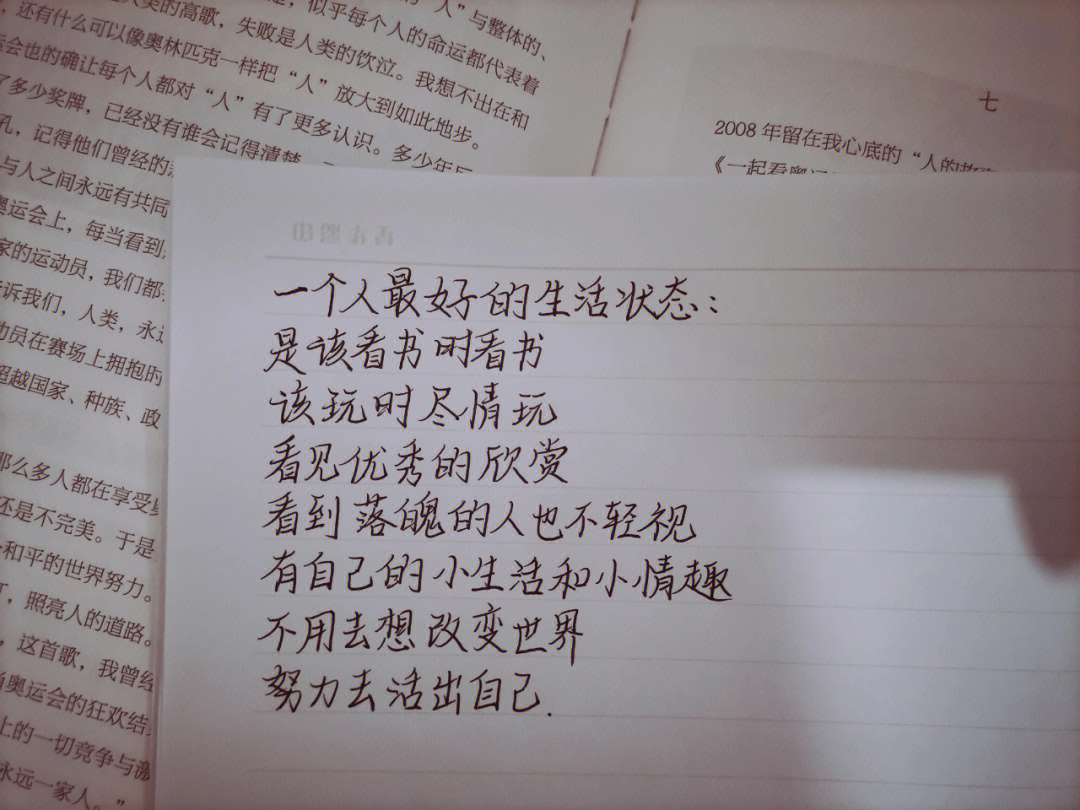 人类的高歌，失败是人类的饮泣。我想不出在和
，还有什么可以像奥林匹克一样把“人”放大到如此地步。
运会也的确让每个人都对“人”有了更多认识。多少年后
了多少奖牌，已经没有谁会记得清楚
孔，记得他们曾经的
与人之间永远有共同
奥运会上，每当看到
家的运动员，我们都
告诉我们，人类，永远
动员在赛场上拥抱时
超越国家、种族、政
那么多人都在享受
还是不完美。于是
和平的世界努力。
灯，照亮人的道路。
，这首歌，我曾经
当奥运会的狂欢结
上的一切竞争与激
永远一家人。”
“人”与整体的、
似乎每个人的命运都代表着
七
2008 年留在我心底的“人的故事
《一起看奥运
一个人最好的生活状态：
是该看书时看书
该玩时尽情玩
看见优秀的欣赏
看到落魄的人也不轻视
有自己的小生活和小情趣
不用去想改变世界
努力去活出自己.